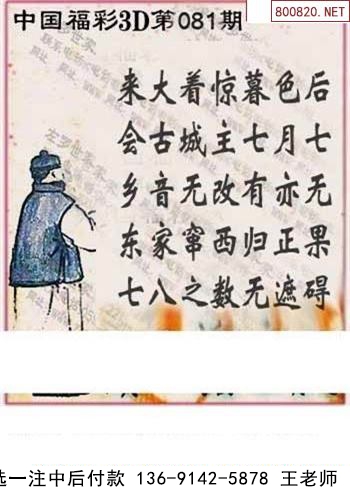 中国福彩3D第081期
800820.NET
来大着惊暮色后
会古城主七月七
乡音无改有亦无
东家窜西归正果
七八之数无遮碍
选一注中后付款 136-9142-5878 王老师